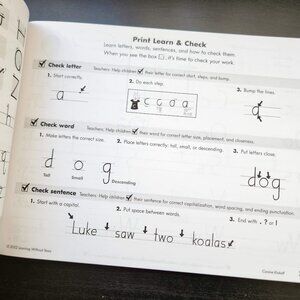 Print Learn & Check
Learn letters, words, sentences, and how to check them.
When you see the box ☐, it's time to check your work.
☑ Check letter Teachers: Help children ☑ their letter for correct start, steps, and bump.
1. Start correctly. 2. Do each step. 3. Bump the lines.
a c c a a a
☑ Check word Teachers: Help children ☑ their word for correct letter size, placement, and closeness.
1. Make letters the correct size. 2. Place letters correctly: tall, small, or descending. 3. Put letters close.
d o g dog
Tall Small Descending
☑ Check sentence Teachers: Help children ☑ their sentence for correct capitalization, word spacing, and ending punctuation.
1. Start with a capital. 2. Put space between words. 3. End with . ? or !
Luke saw two koalas.
© 2022 Learning Without Tears